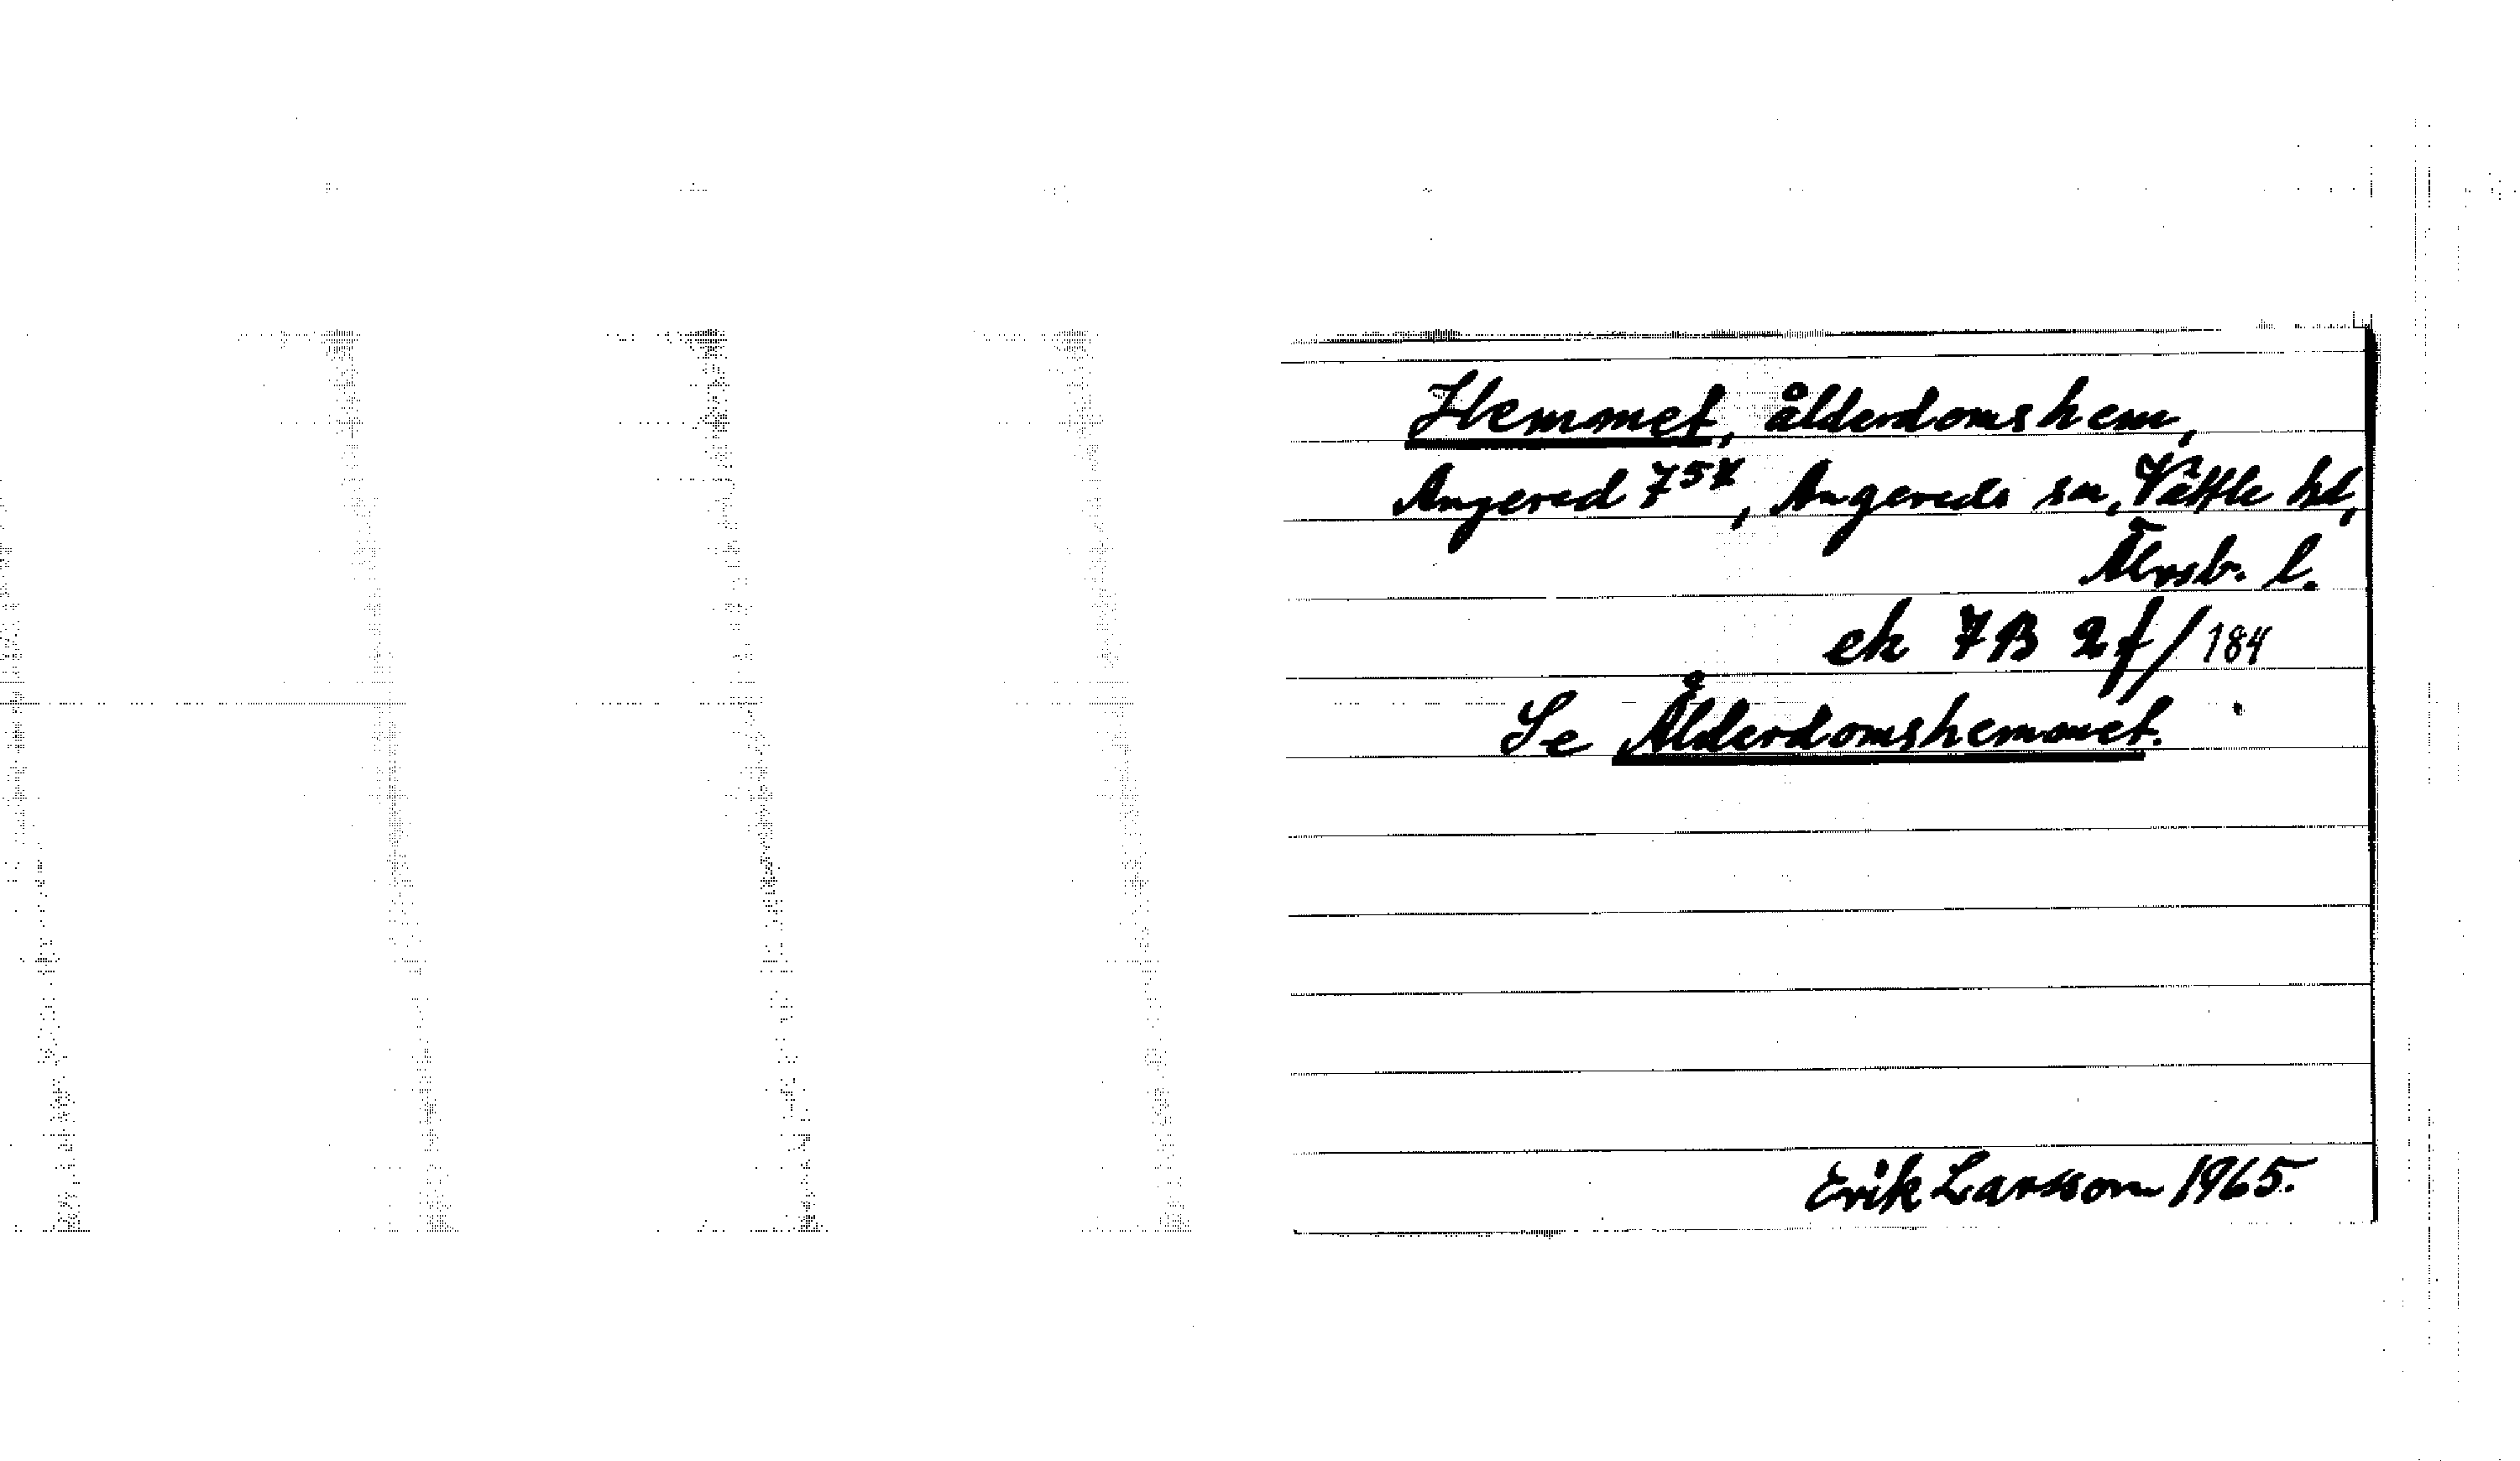 Hemmet, ålderdomshem,
Angered 7⁵ˣ, Angereds sn, Vättle hd,
Älvsb. l.
ek 7B 2f/184
Se Ålderdomshemmet.
Erik Larsson 1965.